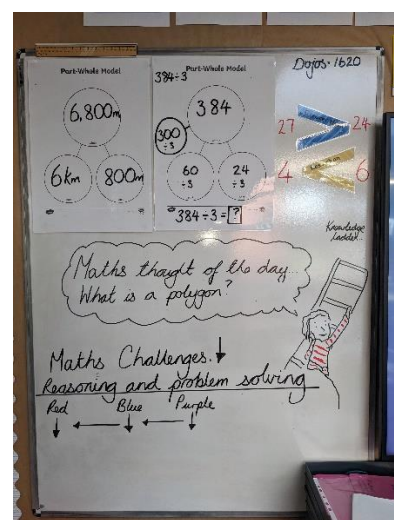 Part-Whole Model
6,800m
6km
800m
384÷3
Part-Whole Model
384
300
÷3
60
÷3
24
÷3
384 ÷ 3 = ?
Dojos. 1620
27
24
4
6
Knowledge
ladder...
Maths thought of the day...
What is a polygon?
Maths Challenges.
Reasoning and problem solving
Red
Blue
Purple